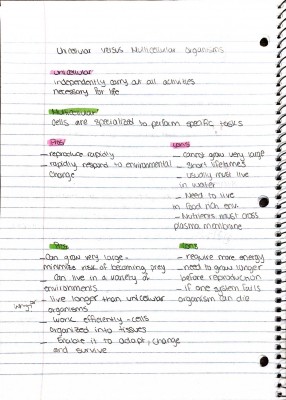 Unicellular versus Multicellular organisms
Unicellular
independently carry out all activities
necessary for life
Multicellular
cells are specialized to perform specific tasks
Pros
_ reproduce rapidly
_ rapidly respond to environmental
change
Cons
_ cannot grow very large
_ short lifetimes
_ usually must live
in water
_ Need to live
in food rich env.
_ Nutrients must cross
plasma membrane
Pros
_ Can grow very large -
minimize risk of becoming prey
_ Can live in a variety of
environments
_ live longer than unicellular
organisms
_ work efficiently - cells
organized into tissues
_ Enable it to adapt, change
and survive
Cons
_ require more energy
_ need to grow longer
before reproduction
_ if one system fails
organism can die